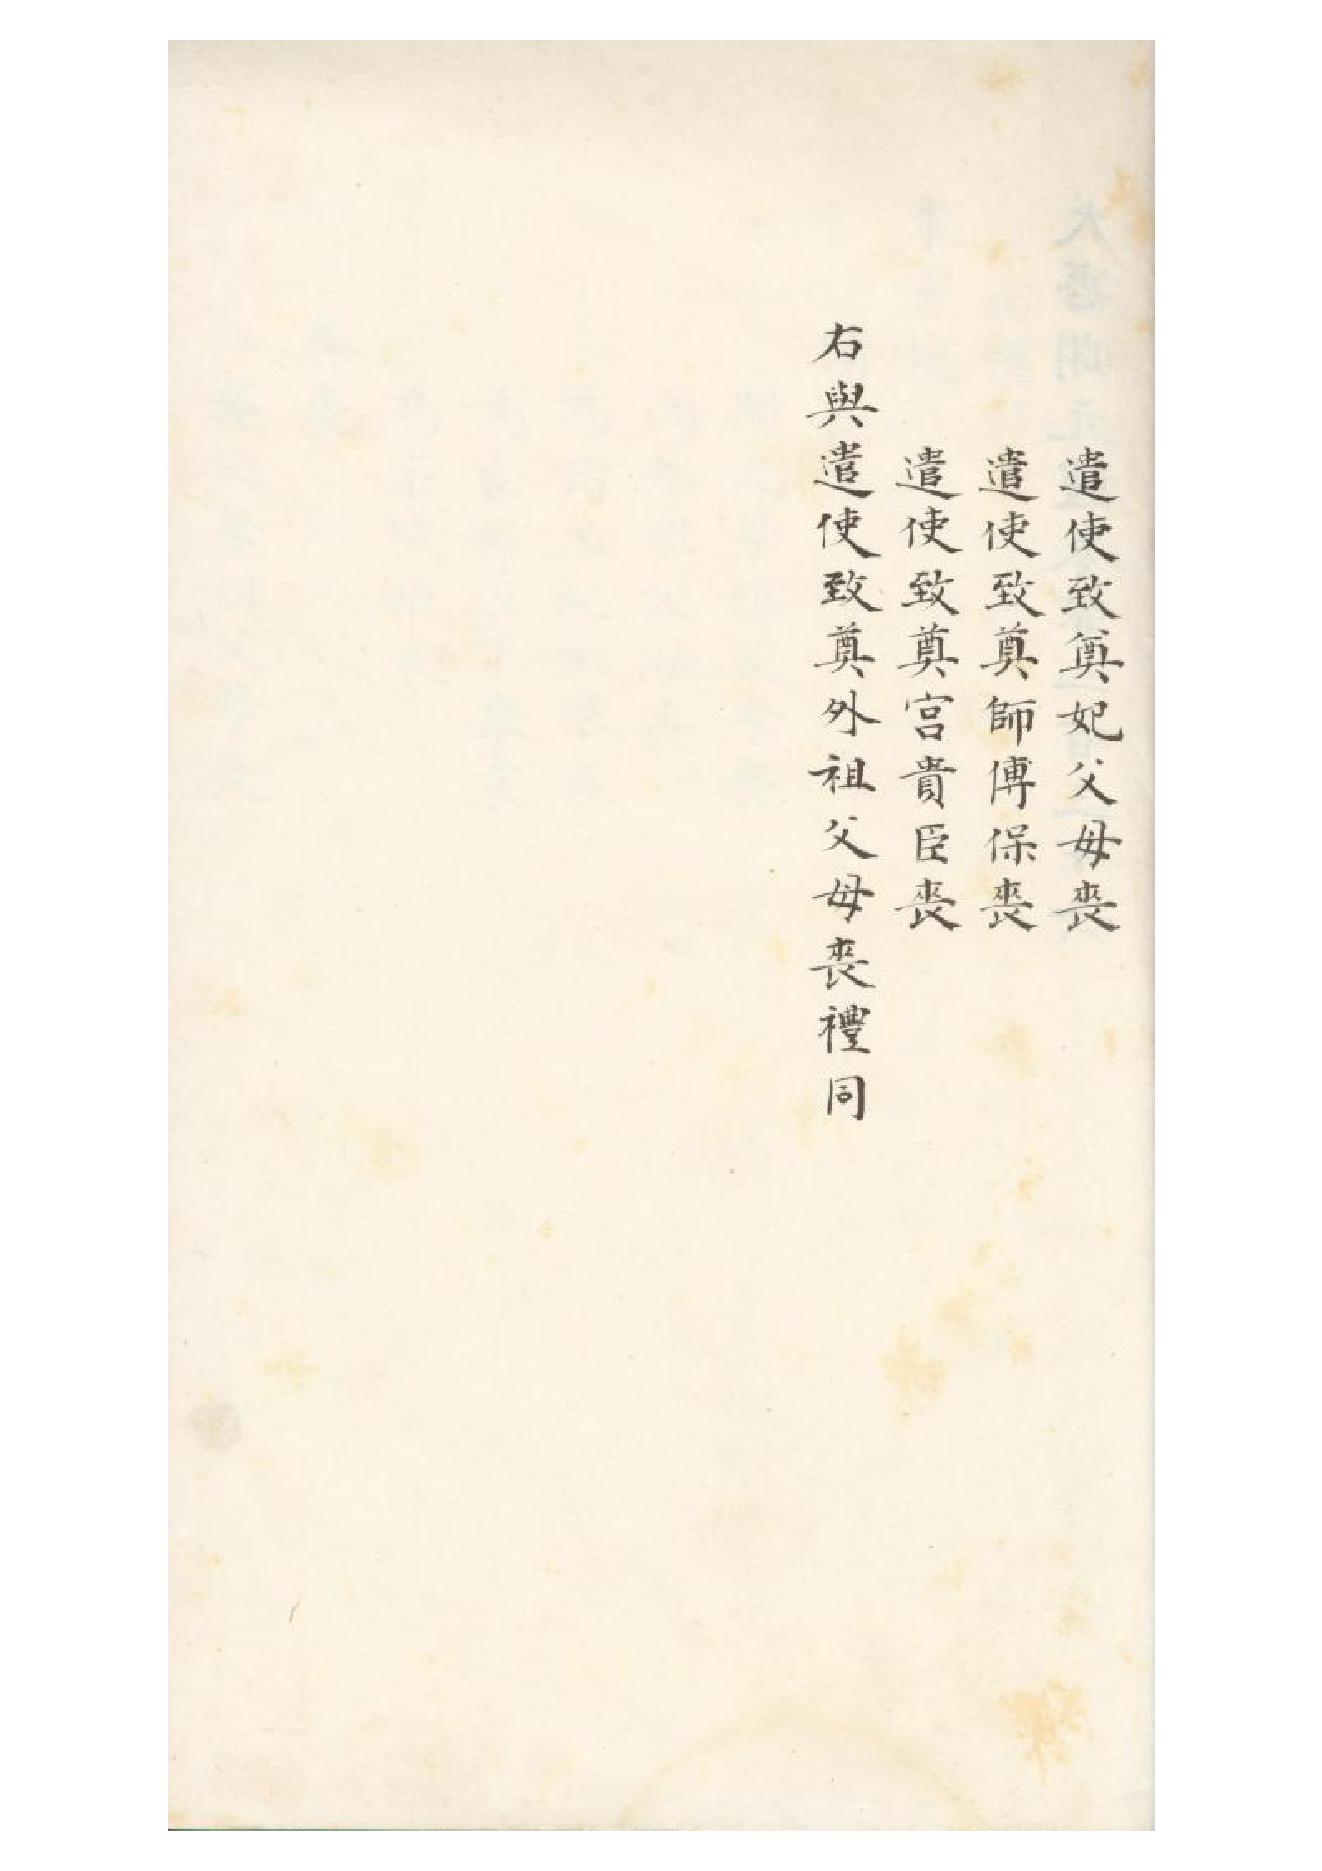 遣使致奠妃父母喪
遣使致奠師傅保喪
遣使致奠宮貴臣喪
右與遣使致奠外祖父母喪禮同